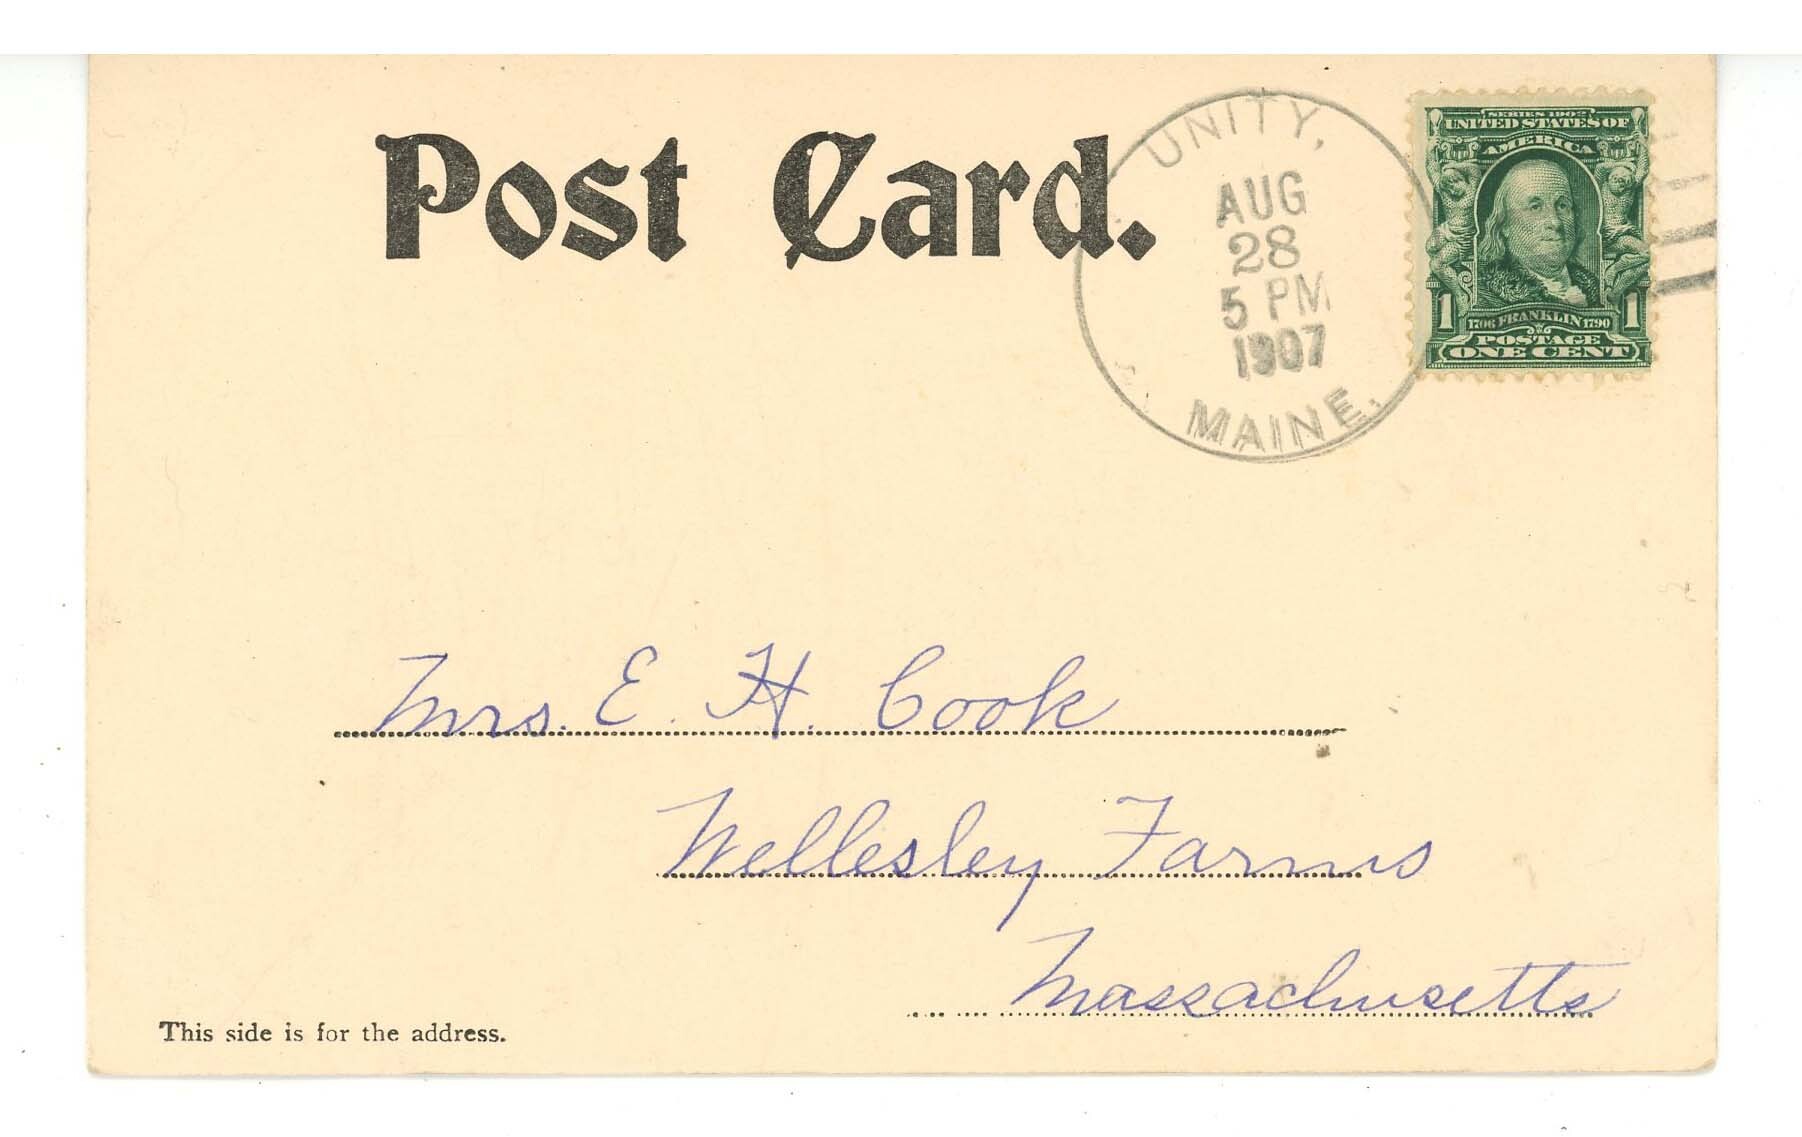 Post Card.
UNITY,
AUG
28
5 PM
1907
MAINE.
SERIES 1902
UNITED STATES OF
AMERICA
1 1706 FRANKLIN 1790 1
POSTAGE
ONE CENT
Mrs. E. H. Cook
Wellesley Farms
Massachusetts
This side is for the address.